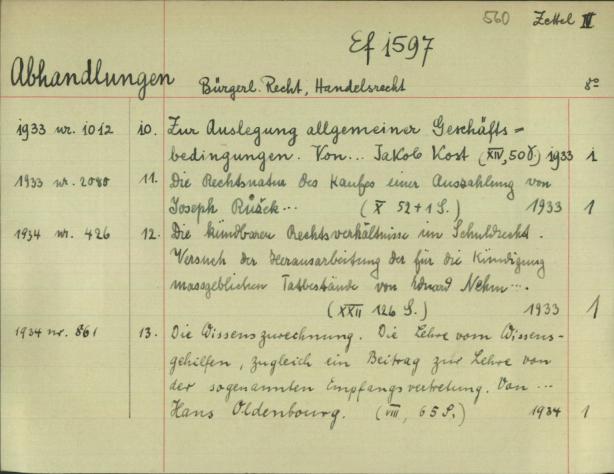 560 Zettel III
Ef 1597
Abhandlungen Bürgerl. Recht, Handelsrecht 8°
1933 nr. 1012 10. Zur Auslegung allgemeiner Geschäfts=
bedingungen. Von... Jakob Kost (XIV, 50 S) 1933 1
1933 nr. 2080 11. Die Rechtsnatur des Kaufes einer Auszahlung von
Joseph ... (X 52+1 S.) 1933 1
1934 nr. 426 12. Die kündbaren Rechtsverhältnisse im Schuldrecht.
Versuch der Herausarbeitung der für die Kündigung
massgeblichen Tatbestände von Eduard Nehm...
(XXII 126 S.) 1933 1
1934 nr. 861 13. Die Wissenszurechnung. Die Lehre vom Wissens-
gehilfen, zugleich ein Beitrag zur Lehre von
der sogenannten Empfangsvertretung. Von ...
Hans Oldenbourg. (VIII, 65 S.) 1934 1